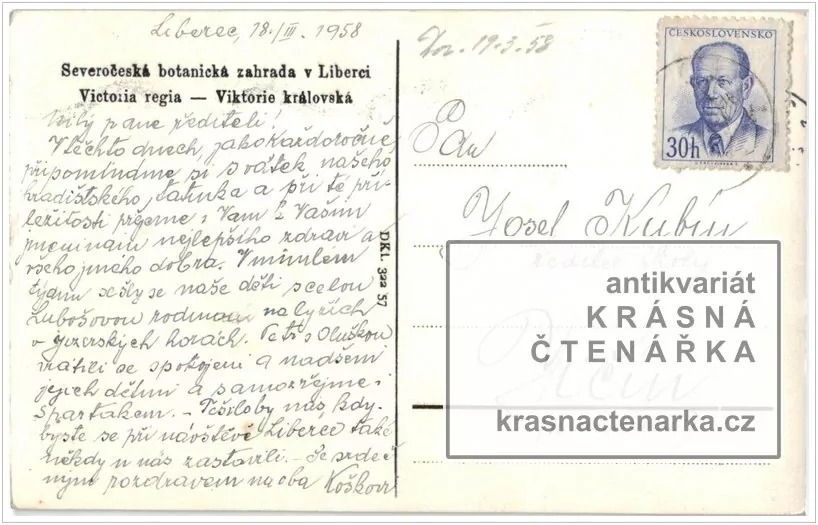 Liberec, 18./III. 1958
Severočeská botanická zahrada v Liberci
Victoria regia — Viktorie královská
Milý pane řediteli!
V těchto dnech, jako každoročně,
připomínáme si svátek našeho
hradištského, tatínka a při té pří-
ležitosti přejeme i Vám i Vašim
nejlepšího zdraví a
všeho jiného dobra. V minulém
týdnu sešly se naše děti s celou
Lubošovou rodinou na lyžích
v jizerských horách. Petr s Oluškou
vrátili se spokojeni a nadšeni
jejich dětmi a samozřejmě i
Spartakem. – Těšilo by nás, kdy-
byste se při návštěvě Liberce také
někdy u nás zastavili. – Se srdeč-
ným pozdravem na oba Koškovi
DKI. 322 57
19.3.58
ČESKOSLOVENSKO
30h
Pan
Josef Kubín
ředitel školy
Jičín
antikvariát
KRÁSNÁ
ČTENÁŘKA
krasnactenarka.cz